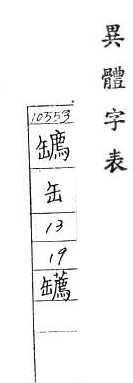 異體字表
10553
缶
13
19